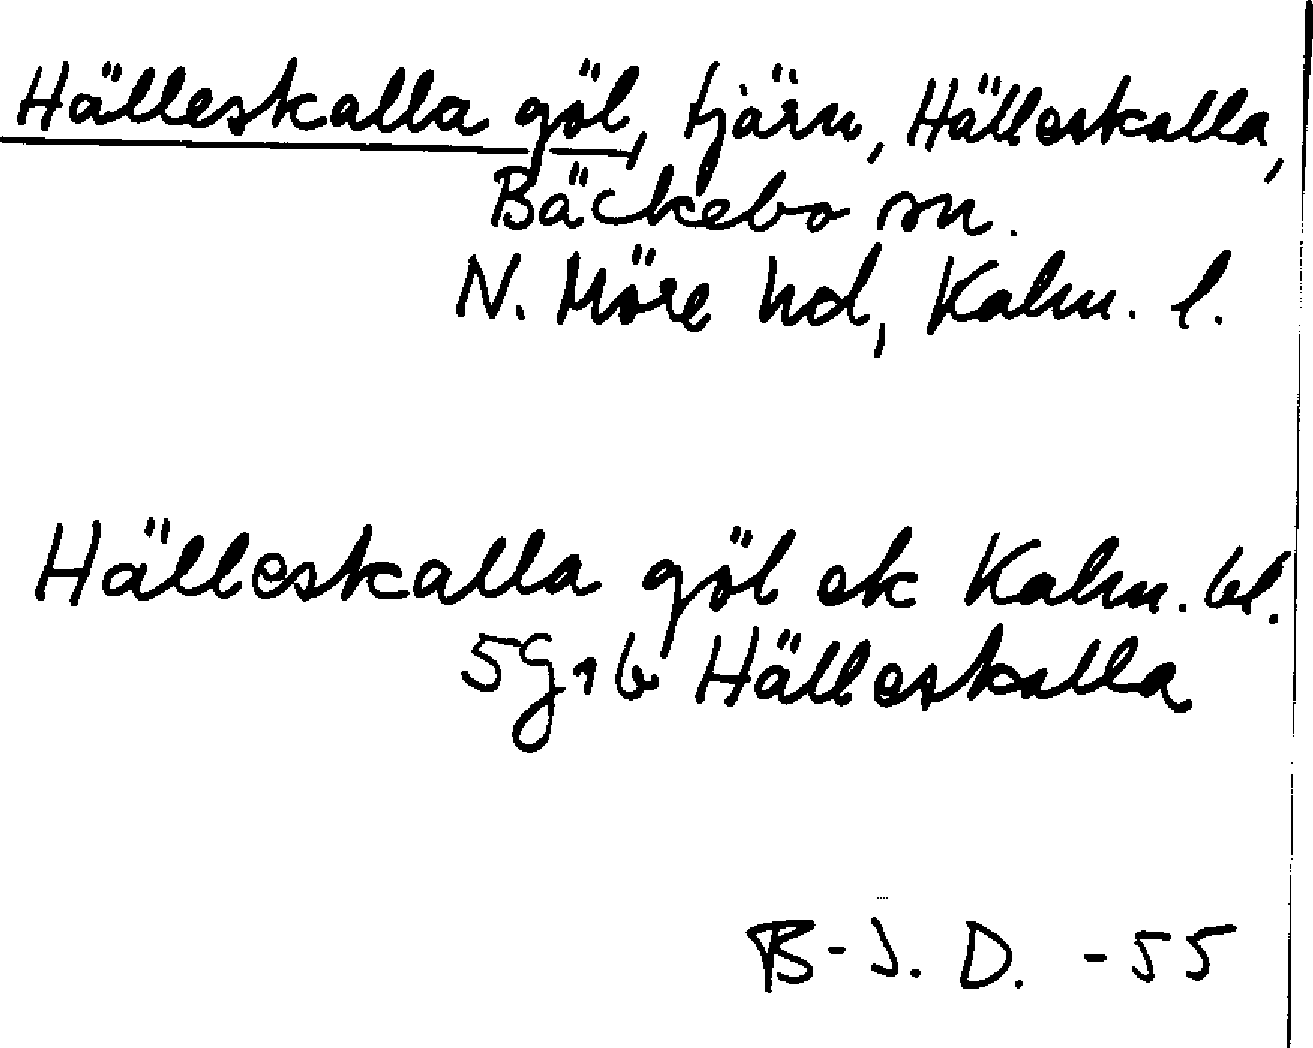 Hälleskalla göl, tjärn, Hälleskalla,
Bäckebo sn.
N. Möre hd, Kalm. l.
Hälleskalla göl ek Kalm. bl.
5g1b Hälleskalla
B-J. D. -55